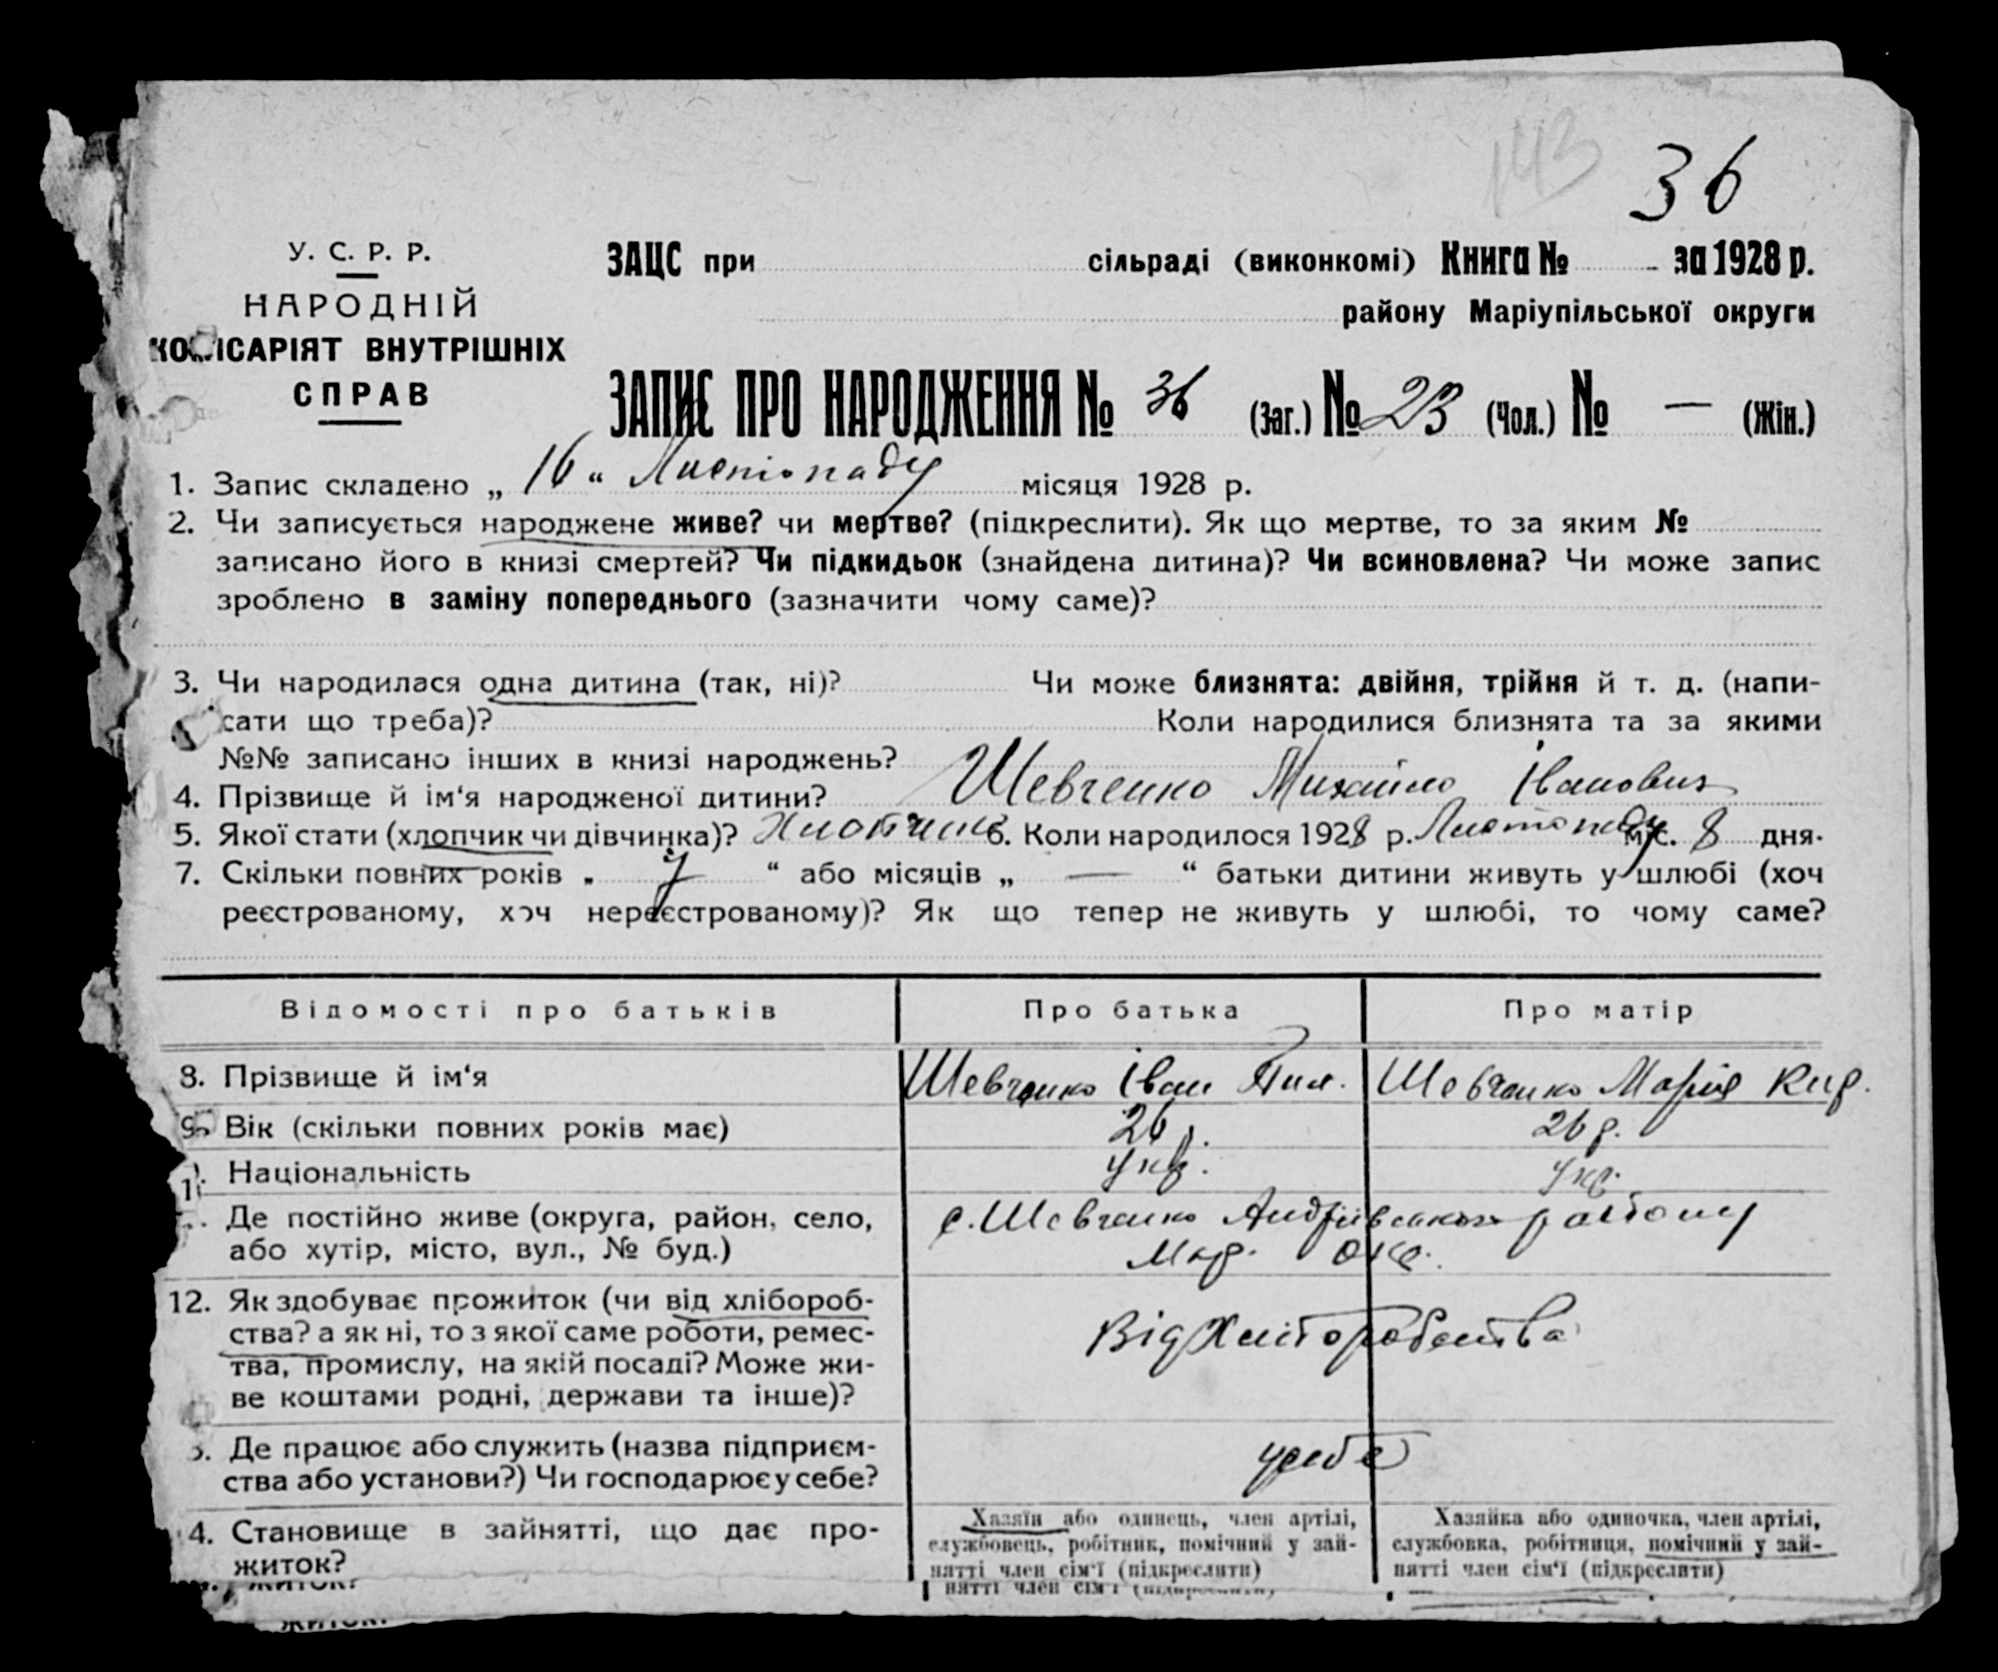 143
36
У. С. Р. Р.
НАРОДНІЙ
КОМІСАРІЯТ ВНУТРІШНІХ
СПРАВ
ЗАЦС при сільраді (виконкомі) Книга № за 1928 р.
району Маріупільської округи
ЗАПИС ПРО НАРОДЖЕННЯ № 36 (Заг.) № 23 (Чол.) № — (Жін.)
1. Запис складено „ 16 “ Листопаду місяця 1928 р.
2. Чи записується народжене живе? чи мертве? (підкреслити). Як що мертве, то за яким №
записано його в книзі смертей? Чи підкидьок (знайдена дитина)? Чи всиновлена? Чи може запис
зроблено в заміну попереднього (зазначити чому саме)?
3. Чи народилася одна дитина (так, ні)? Чи може близнята: двійня, трійня й т. д. (напи-
сати що треба)? Коли народилися близнята та за якими
№№ записано інших в книзі народжень?
4. Прізвище й ім‘я народженої дитини? Шевченко Михайло Іванович
5. Якої стати (хлопчик чи дівчинка)? Хлопчик 6. Коли народилося 1928 р. Листопаду міс. 8 дня.
7. Скільки повних років „ “ або місяців „ — “ батьки дитини живуть у шлюбі (хоч
реєстрованому, хоч нереєстрованому)? Як що тепер не живуть у шлюбі, то чому саме?
Відомості про батьків Про батька Про матір
8. Прізвище й ім‘я Шевченко Іван Пил. Шевченко Марія Кир.
9. Вік (скільки повних років має) 26 р. 26 р.
Національність Укр. Укр.
Де постійно живе (округа, район, село,
або хутір, місто, вул., № буд.)
с. Шевченко Андріівського району
Мар. окр.
12. Як здобуває прожиток (чи від хлібороб-
ства? а як ні, то з якої саме роботи, ремес-
тва, промислу, на якій посаді? Може жи-
ве коштами родні, держави та інше)?
Від Хліборобства
3. Де працює або служить (назва підприєм-
ства або установи?) Чи господарює у себе?
у себе
4. Становище в зайнятті, що дає про-
житок?
Хазяїн або одинець, член артілі,
службовець, робітник, помічний у зай-
нятті член сім‘ї (підкреслити)
Хазяйка або одиночка, член артілі,
службовка, робітниця, помічний у зай-
нятті член сім‘ї (підкреслити)